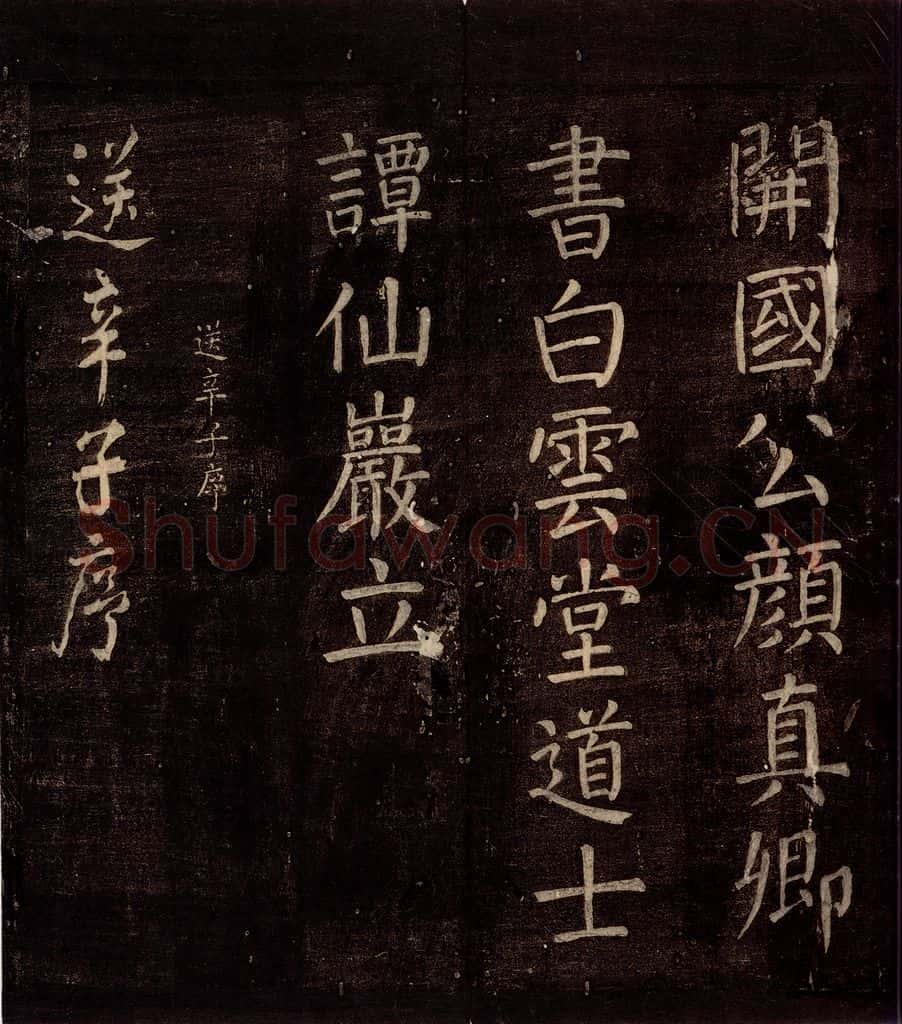 開國公顔真卿
書白雲堂道士
譚仙巖立
送辛子序
送辛子序
Shufawang.CN